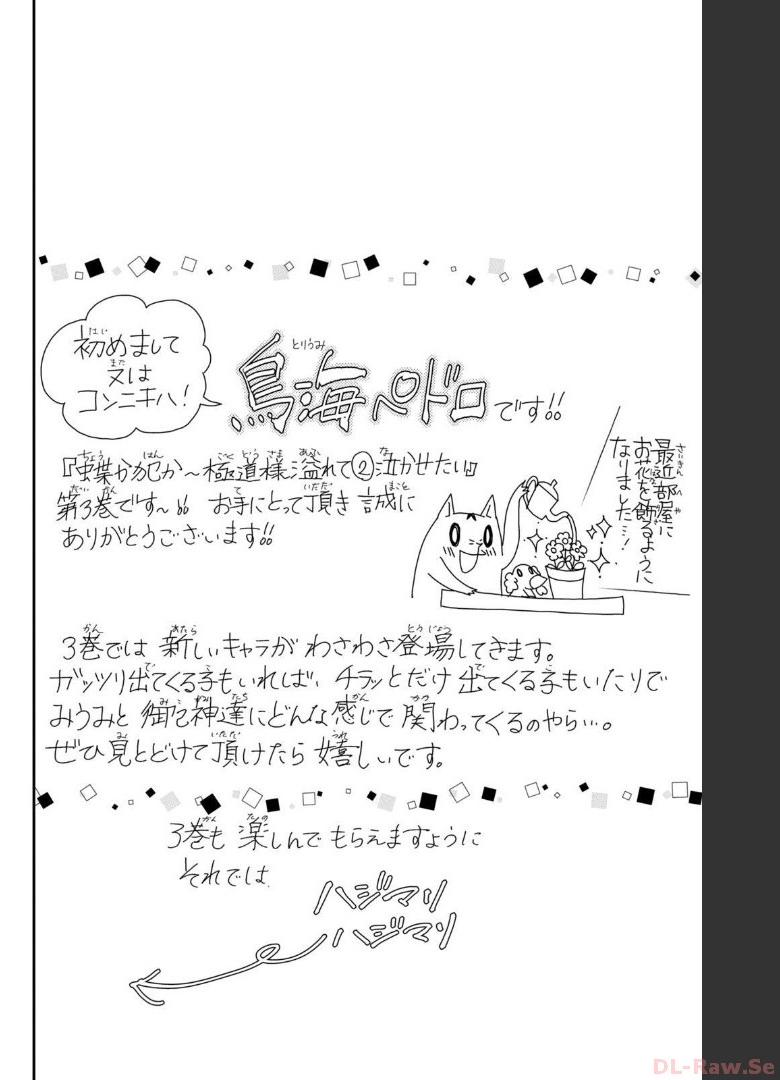 初めまして
又は
コンニチハ！
鳥海ペドロです!!
『蝶か犯か～極道様溢れて②泣かせたい』
第3巻です～!! お手にとって頂き 誠に
ありがとうございます!!
最近部屋に
お花を飾るように
なりました…！
3巻では 新しいキャラが わさわさ登場してきます。
ガッツリ出てくる子もいれば、チラッとだけ 出てくる子もいたりで
みうみと 御神達にどんな感じで 関わってくるのやら…。
ぜひ見とどけて頂けたら 嬉しいです。
3巻も 楽しんで もらえますように
それでは
ハジマリ
ハジマリ
DL-Raw.Se